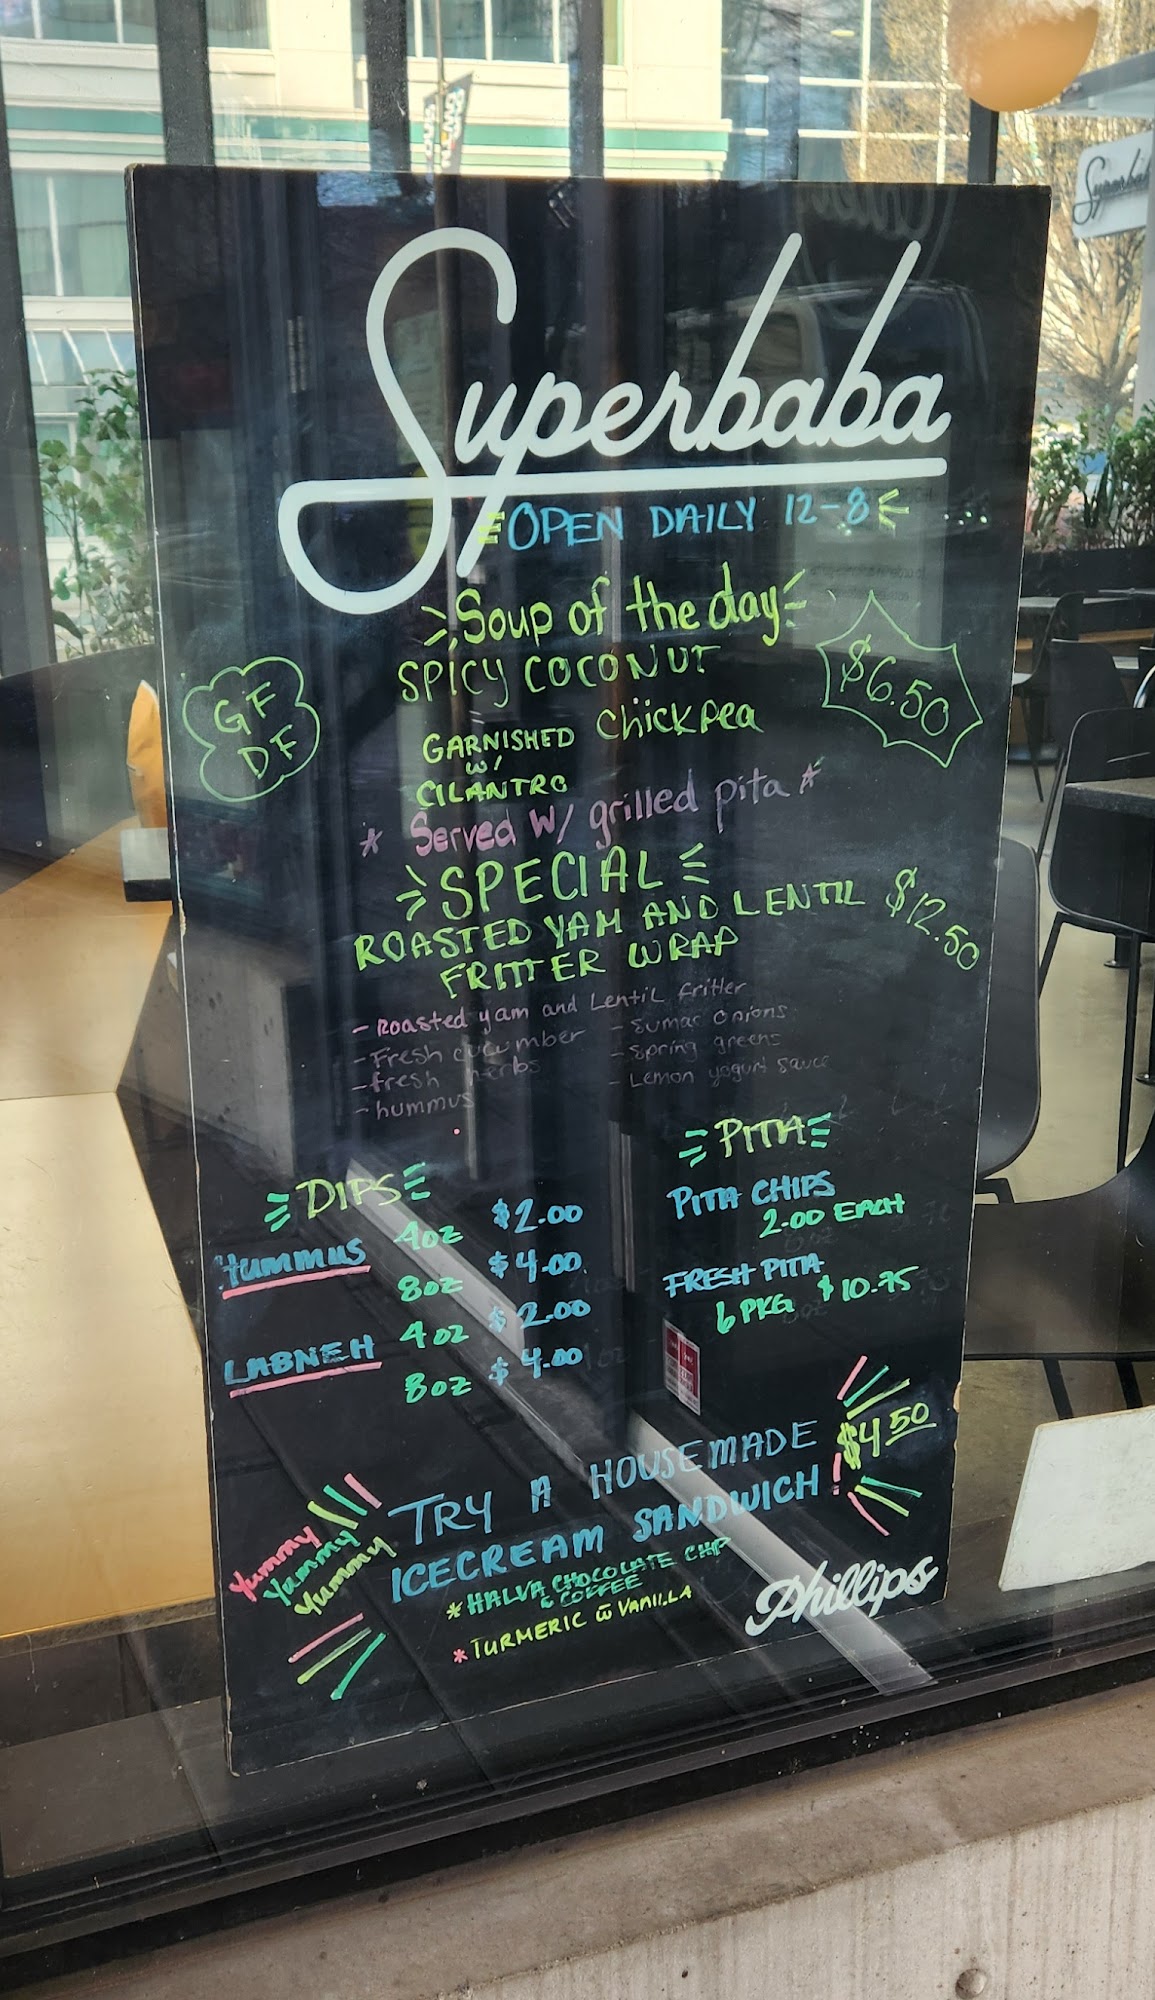 Superbaba
OPEN DAILY 12-8
Soup of the day
SPICY COCONUT
Chickpea
GF
DF
$6.50
GARNISHED
w/
CILANTRO
* Served w/ grilled pita *
SPECIAL
ROASTED YAM AND LENTIL
FRITTER WRAP
$12.50
- Roasted yam and Lentil fritter
- Fresh cucumber
- fresh herbs
- hummus
- Sumac onions
- Spring greens
- Lemon yogurt sauce
DIPS
HUMMUS 4oz $2.00
8oz $4.00
LABNEH 4oz $2.00
8oz $4.00
PITA
PITA CHIPS
2.00 EACH
FRESH PITA
6 PKG $10.75
TRY A HOUSEMADE
ICECREAM SANDWICH!
$4.50
Yummy
Yummy
Yummy
* HALVA CHOCOLATE CHIP
& COFFEE
* TURMERIC W VANILLA
Phillips
Superbab